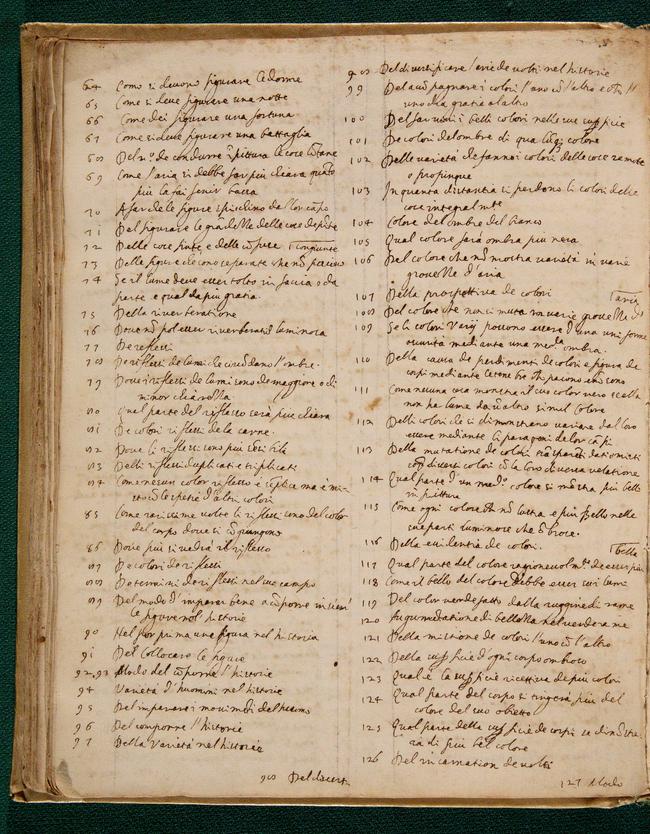 64 Como si devono figurare le donne
65 Come si deve figurare una notte
66 Come dei figurare una fortuna
67 Come si deve figurare una battaglia
68 Del m.º de condurre ĩ pittura le cose lõtane
69 Come l'aria si debbe far più chiara quãto
più la fai finir bassa
70 A far de le figure spicchino dal lor cãpo
71 Del figurare le grãdezze delle cose depĩte
72 Delle cose finite, e delle cõfuse congiunte
73 Delle figure che sono separate che nõ paiono
74 Se il lume deve esser tolto in faccia o da
parte e qual da più gratia
75 Della riverberatione
76 Dove nõ pol esser riverberatiõ luminosa
77 De reflessi
78 De riflessi de lumi che circõdano l'ombre
79 Dove i riflessi de lumi sono de maggiore o di
minor chiarezza
80 Qual parte del riflesso sarà più chiara
81 De colori riflessi de la carne
82 Dove li riflessi sono più sẽsibili
83 Delli riflessi duplicati e triplicati
84 Come nessun color riflesso è sẽplice ma è mi-
sto cõ le spetie d'altri colori
85 Come rarissime volte li riflessi sono del color
del corpo dove si cõgiungono
86 Dove più si vedrà il riflesso
87 De colori de riflessi
88 De termini de riflessi nel suo campo
89 Del modo d'imparar bene a cõporre insiem
le figure nel historie
90 Nel por prima una figura nel historia
91 Del collocare le figure
92.93 Modo del cõporre l'historie
94 Varietà d'huomini nel historie
95 Del imparar i movimẽti del huomo
96 Del comporre l'historie
97 Della varietà nel historie
98 Del diversi
98 Del diversificare l'arie de volti nel historie
99 Del accõpagnare i colori l'uno cõ l'altro e ch
uno dia gratia al altro
100 Del far vivi i belli colori nelle sue supficie
101 De colori del ombre di qualũq; colore
102 Delle varietà che fanno i colori delle cose remote
o propinque
103 In quanta distantia si perdono li colori delle
cose integralmte
104 Colore del ombre del bianco
105 Qual colore farà ombra più nera
106 Del colore che nõ mostra varietà in varie
grossezze d'aria
107 Della prospettiva de colori
108 Del colore che non si muta in varie grossezze d'aria
109 Se li colori varij possono essere d'una uniforme
oscurità mediante una meda ombra
110 Della causa de perdimenti de colori e figura de
corpi mediante le tenebre ch parono e nõ sono
111 Come nessuna cosa mostra il suo color vero s'ella
non ha lume da un altro simil colore
112 Delli colori che si dimostrano variare dal loro
essere mediante li paragoni de lor cãpi
113 Della mutatione de colori trãsparẽti dati o misti
cõ diversi colori cõ la loro diversa velatione
114 Qual parte d'un medo colore si mõstra più bella
in pittura
115 Come ogni colore ch nõ lustra e più bello nelle
sue parti luminose che ombrose
116 Della evidentia de colori
117 Qual parte del colore ragionevolmte de esser più bella
118 Come il bello del colore debbe esser nei lumi
119 Del color verde fatto dalla ruggine di rame
120 Augumẽtatione di bellezza nel verderame
121 Della mistione de colori l'uno cõ l'altro
122 Della supficie d'ogni corpo ombroso
123 Qual è la supficie ricettiva de più colori
124 Qual parte del corpo si tingerà più del
colore del suo obietto
125 Qual parte della supficie de corpi se dimostre-
rà di più bel colore
126 Del incarnation de volti
127 Modo